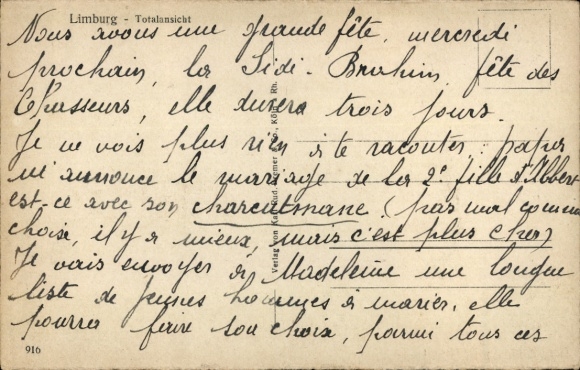 Limburg - Totalansicht
Nous avons une grande fête, mercredi
prochain, la Sidi-Brahim, fête des
Chasseurs, elle durera trois jours.
Je ne vois plus rien à te raconter; papa
m'annonce le mariage de la 2e fille d'Albert
est-ce avec son (pas mal comme
choix, il y a mieux, mais c'est plus cher)
Je vais envoyer à Madeleine une longue
liste de jeunes hommes à marier, elle
pourra faire son choix, parmi tous ces
916
Verlag von Köln Rh.